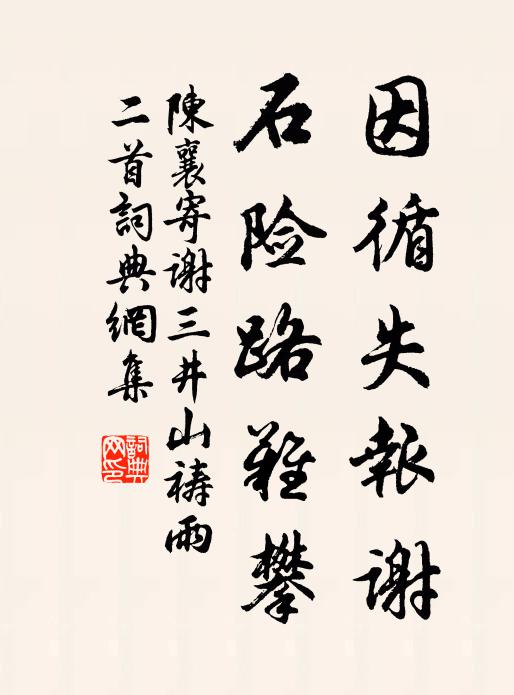 因循失報谢
石险路難攀
陳襄寄谢三井山祷雨
二首詞典網集
詞典网印